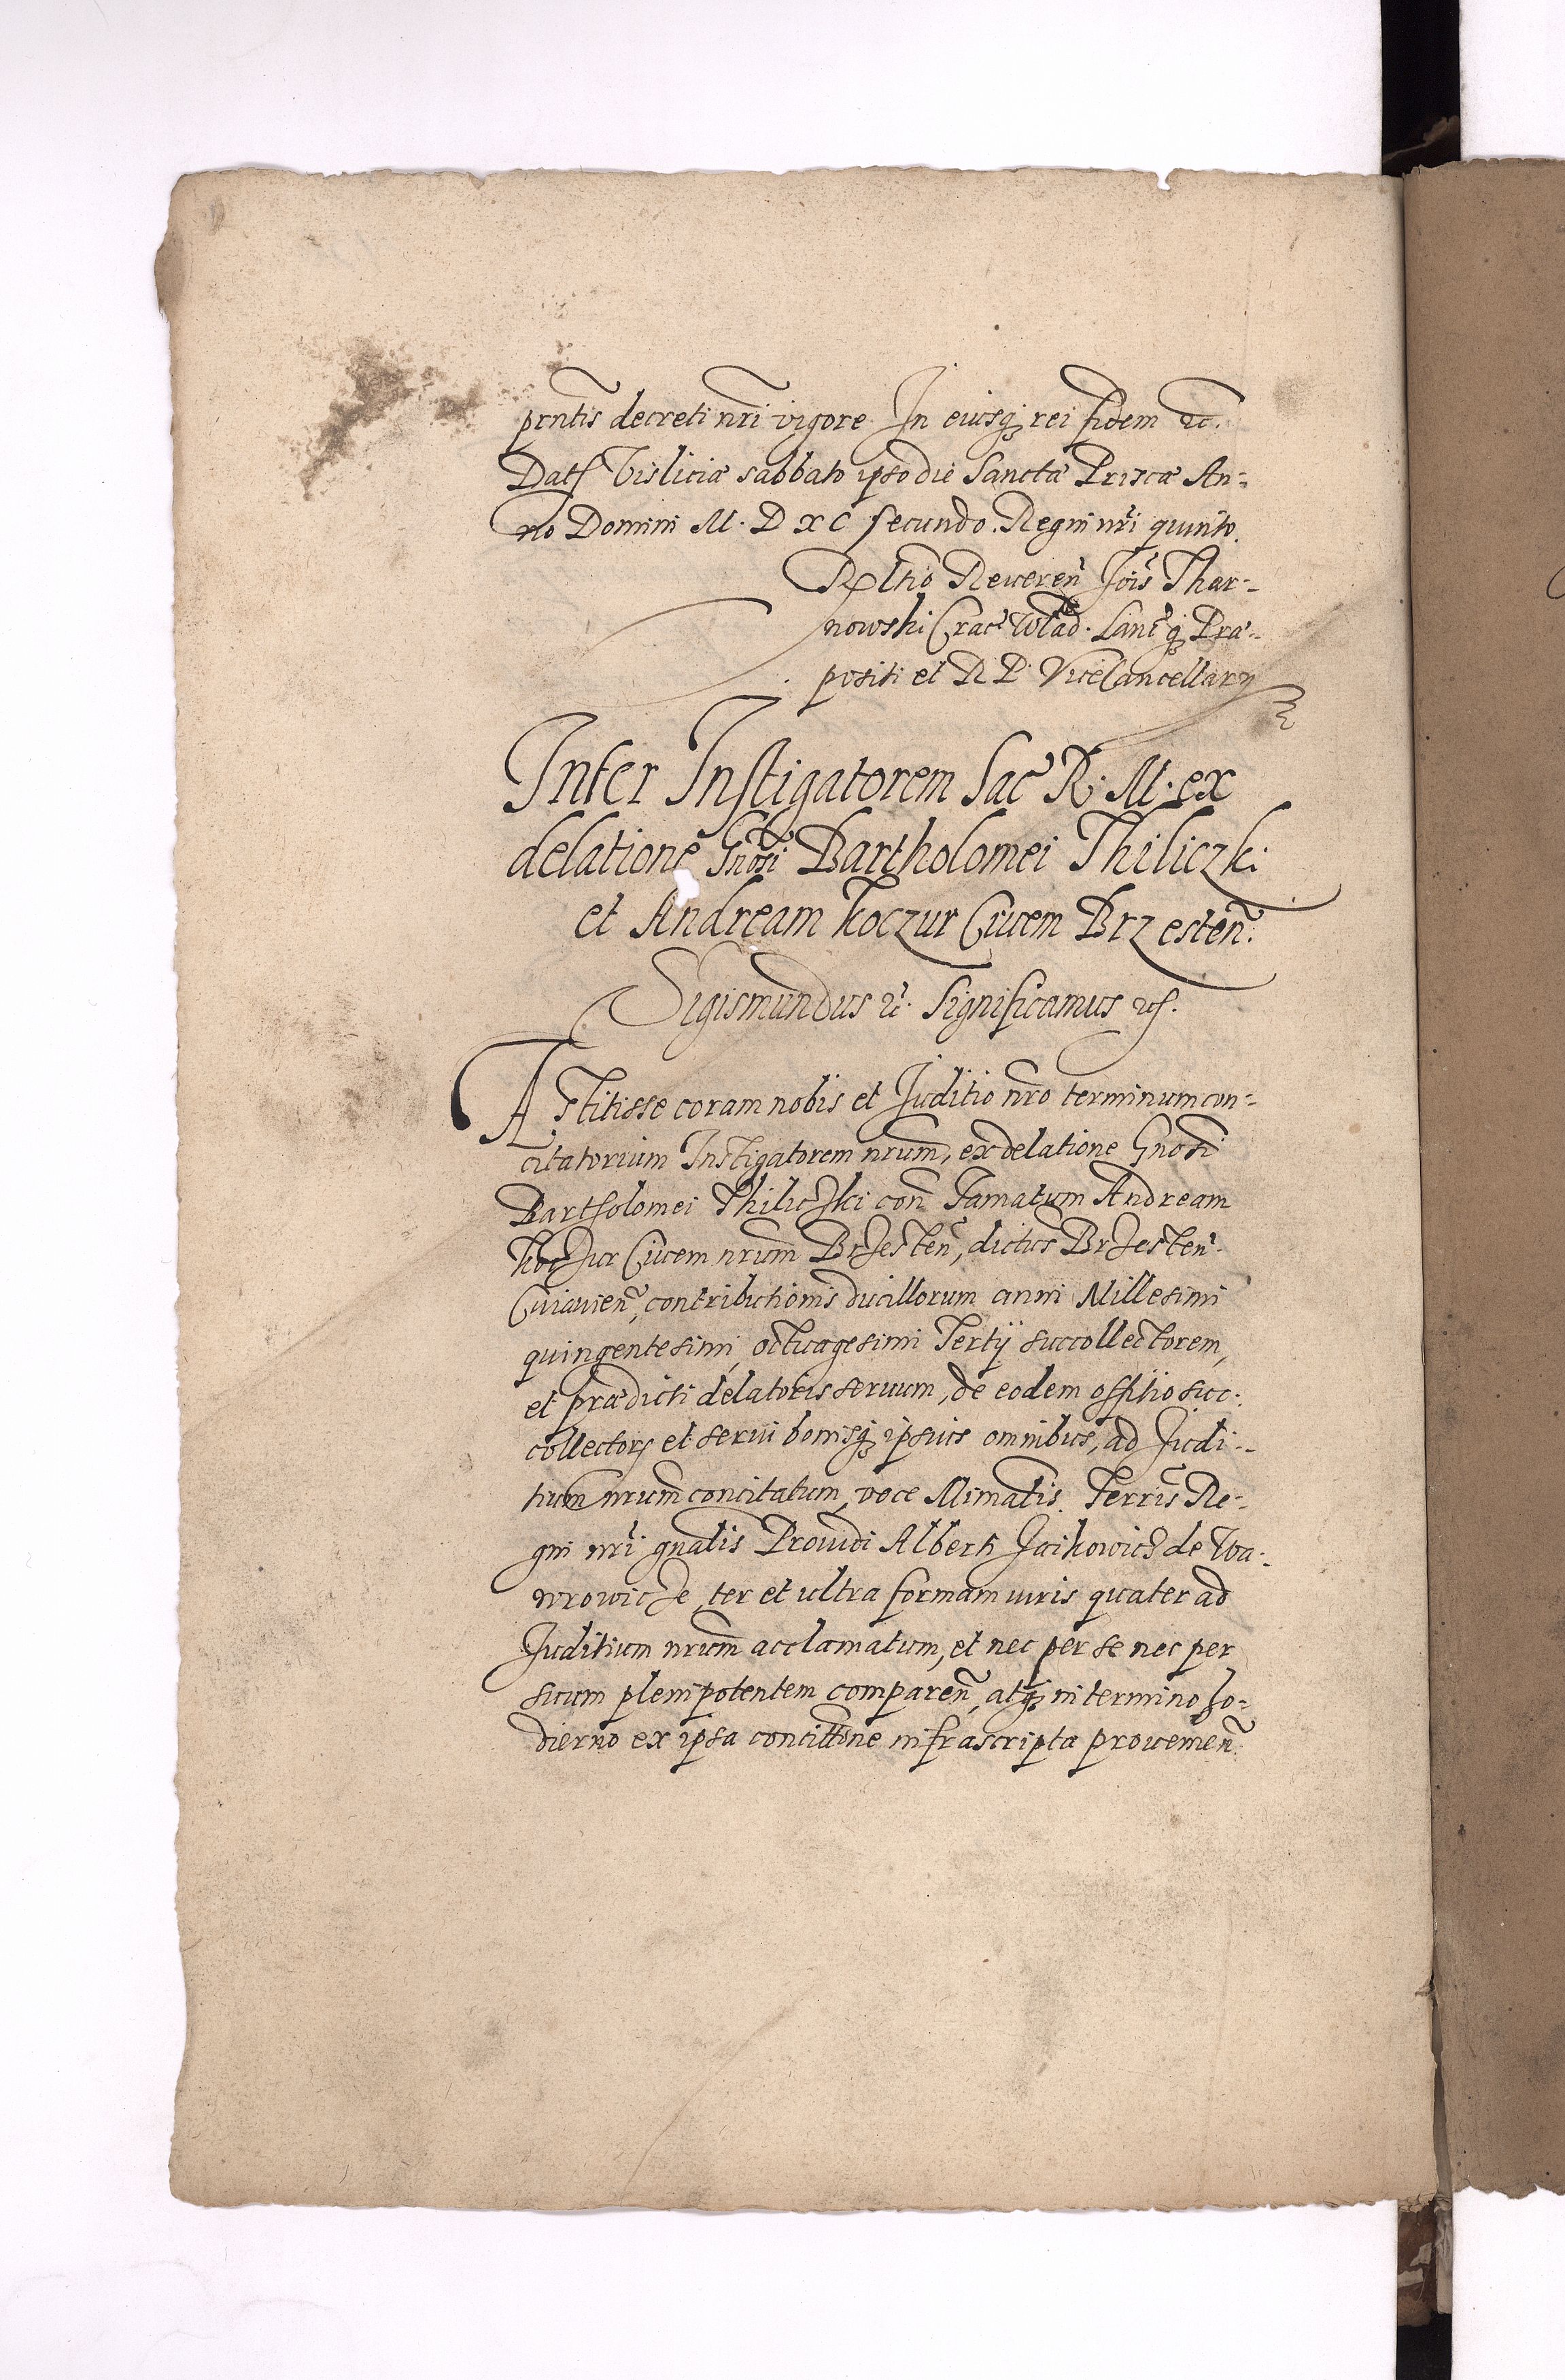 prntis decreti nri vigore. In eiusq rei fidem etc.
Dat Vislicia sabbato ipso die Sancta Prisca An=
no Domini M. D XC secundo. Regni nri quinto.
Rltio Reveren Jois Thar=
nowski Crac Wlad. Lanc q Præ=
positi et R P. Vicecancellary
Inter Instigatorem Sac R. M. ex
delatione Gnosi Bartholomei Thiliczki
et Andream Koczur Civem Brzesten.
Sigismundus etc. Significamus etc.
Astitisse coram nobis et Juditio nro terminum con=
citatorium Instigatorem nrum, ex delatione Gnosi
Bartholomei Thiliczki con Famatum Andream
Koczur Civem nrum Brzesten, dictus Brzesten.
Cuiavien, contributionis ducillorum anni Millesimi
quingentesimi, octuagesimi Tertij succollectorem,
et prædicti delatoris servum, de eodem offitio suc=
collectory et servi bonisq ipsius omnibus, ad Judi=
tium nrum concitatum, voce Mimalis Terris Re=
gni nri gnalis Providi Alberti Jaikowicz de Wa=
wrowicze ter et ultra formam iuris quater ad
Juditium nrum acclamatum, et nec per se nec per
suum plenipotentem comparen, atq in termino ho=
dierno ex ipsa concittne infrascripta provenien.